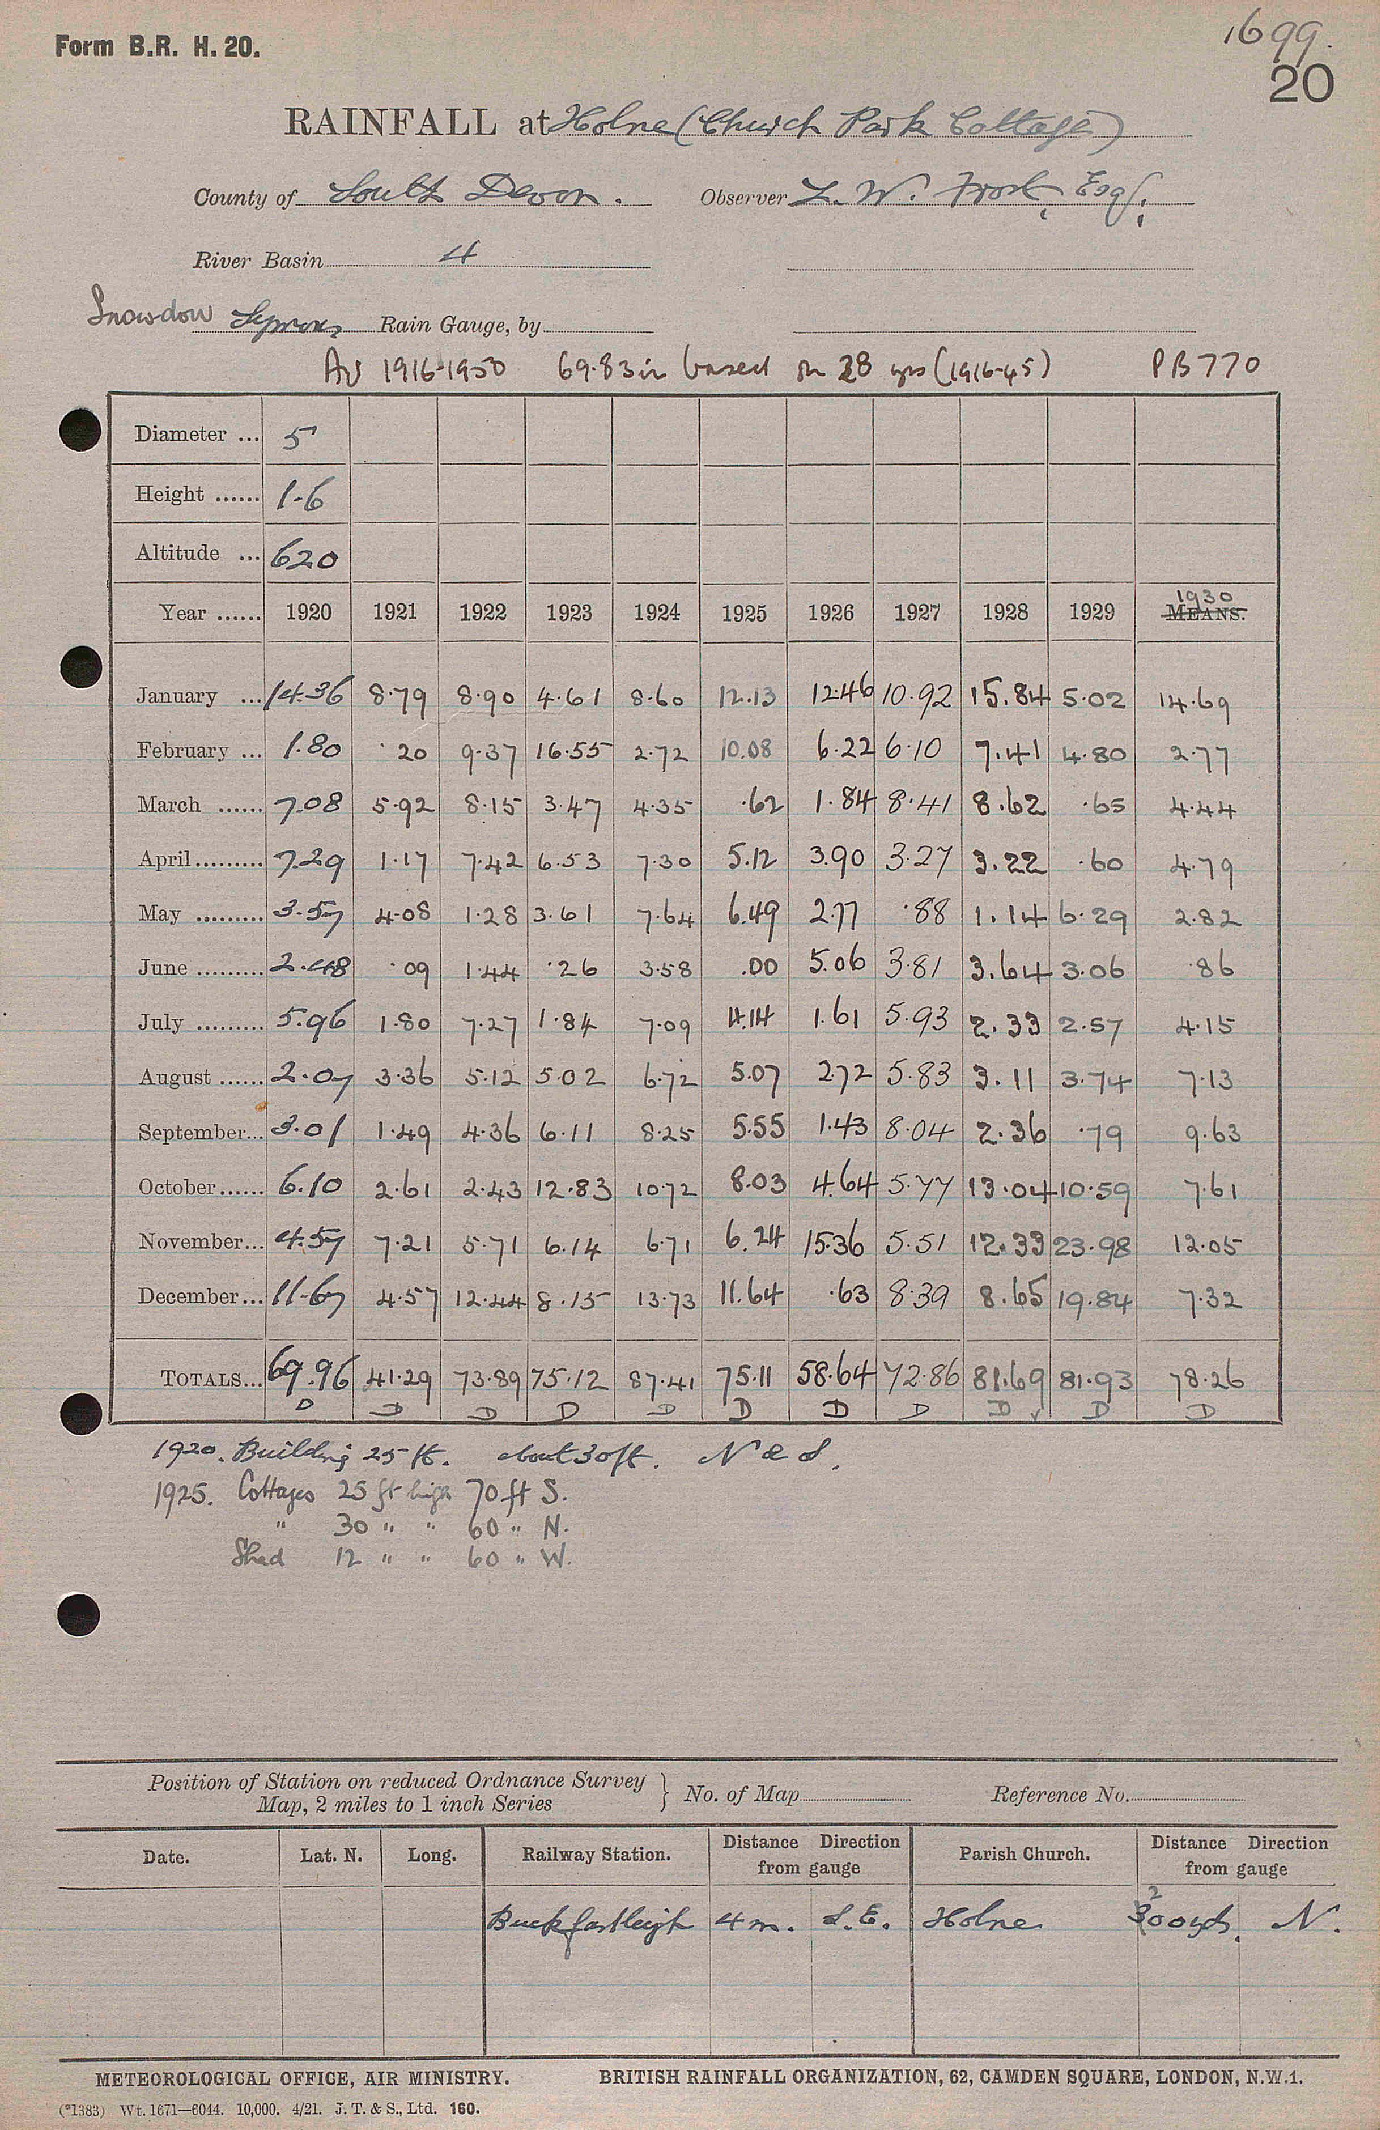 Form B.R. H. 20.
1699.
20
RAINFALL at Holne (Church Park Cottage)
County of South Devon. Observer L. W. Frost, Esq.
River Basin 4
Snowdon Symons Rain Gauge, by
Av 1916-1950 69.83 in based on 28 yrs (1916-45) PB770
Diameter ... 5
Height ...... 1.6
Altitude ... 620
Year ...... 1920 1921 1922 1923 1924 1925 1926 1927 1928 1929 1930 MEANS.
January ... 14.36 8.79 8.90 4.61 8.60 12.13 12.46 10.92 15.84 5.02 14.69
February ... 1.80 .20 9.37 16.55 2.72 10.08 6.22 6.10 7.41 4.80 2.77
March ...... 7.08 5.92 8.15 3.47 4.35 .62 1.84 8.41 8.62 .65 4.44
April......... 7.29 1.17 7.42 6.53 7.30 5.12 3.90 3.27 3.22 .60 4.79
May ......... 3.57 4.08 1.28 3.61 7.64 6.49 2.77 .88 1.14 6.29 2.82
June ......... 2.48 .09 1.44 .26 3.58 .00 5.06 3.81 3.64 3.06 .86
July ......... 5.96 1.80 7.27 1.84 7.09 4.14 1.61 5.93 2.33 2.57 4.15
August ...... 2.07 3.36 5.12 5.02 6.72 5.07 2.72 5.83 3.11 3.74 7.13
September... 3.01 1.49 4.36 6.11 8.25 5.55 1.43 8.04 2.36 .79 9.63
October...... 6.10 2.61 2.43 12.83 10.72 8.03 4.64 5.77 13.04 10.59 7.61
November... 4.57 7.21 5.71 6.14 6.71 6.24 15.36 5.51 12.33 23.98 12.05
December... 11.67 4.57 12.44 8.15 13.73 11.64 .63 8.39 8.65 19.84 7.32
TOTALS... 69.96 41.29 73.89 75.12 87.41 75.11 58.64 72.86 81.69 81.93 78.26
D D D D D D D D D D D
1920. Building 25 ft. about 30 ft. N & S.
1925. Cottages 25 ft high 70 ft S.
" 30 " " 60 " N.
Shed 12 " " 60 " W.
Position of Station on reduced Ordnance Survey
Map, 2 miles to 1 inch Series } No. of Map Reference No.
Date. Lat. N. Long. Railway Station. Distance Direction from gauge Parish Church. Distance Direction from gauge
Buckfastleigh 4 m. S.E. Holne 200 yds. N.
METEOROLOGICAL OFFICE, AIR MINISTRY. BRITISH RAINFALL ORGANIZATION, 62, CAMDEN SQUARE, LONDON, N.W.1.
(*1383) Wt. 1671—6044. 10,000. 4/21. J. T. & S., Ltd. 160.